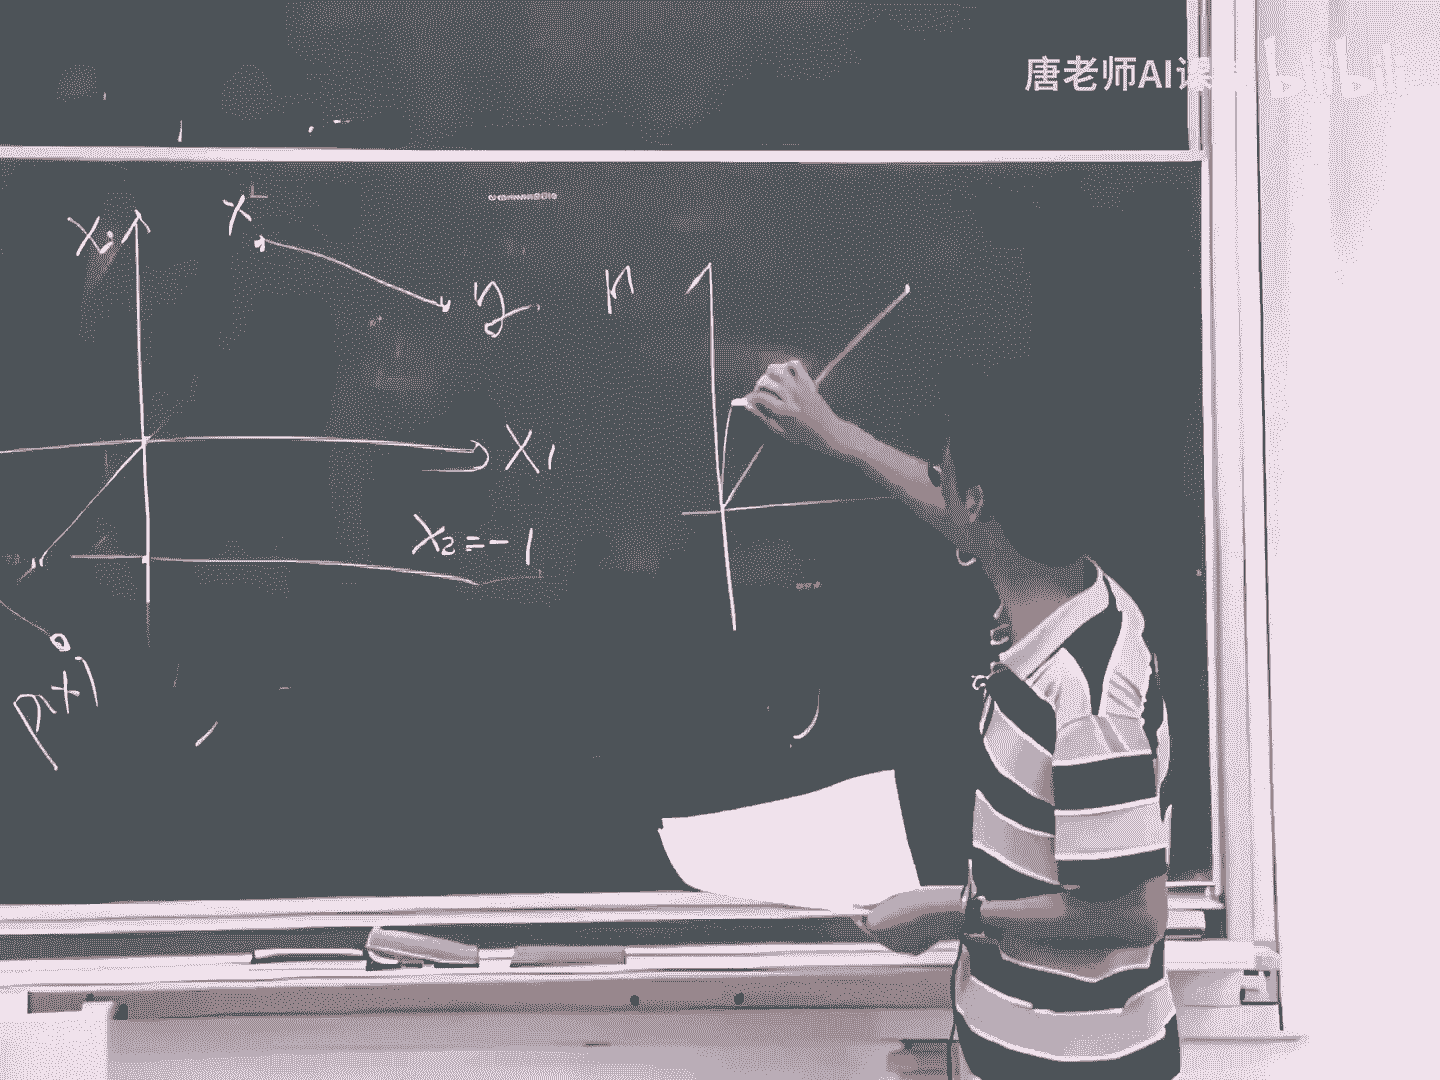 唐老师AI课 bilibili
X
y
n
X1
X2=-1
p(x)